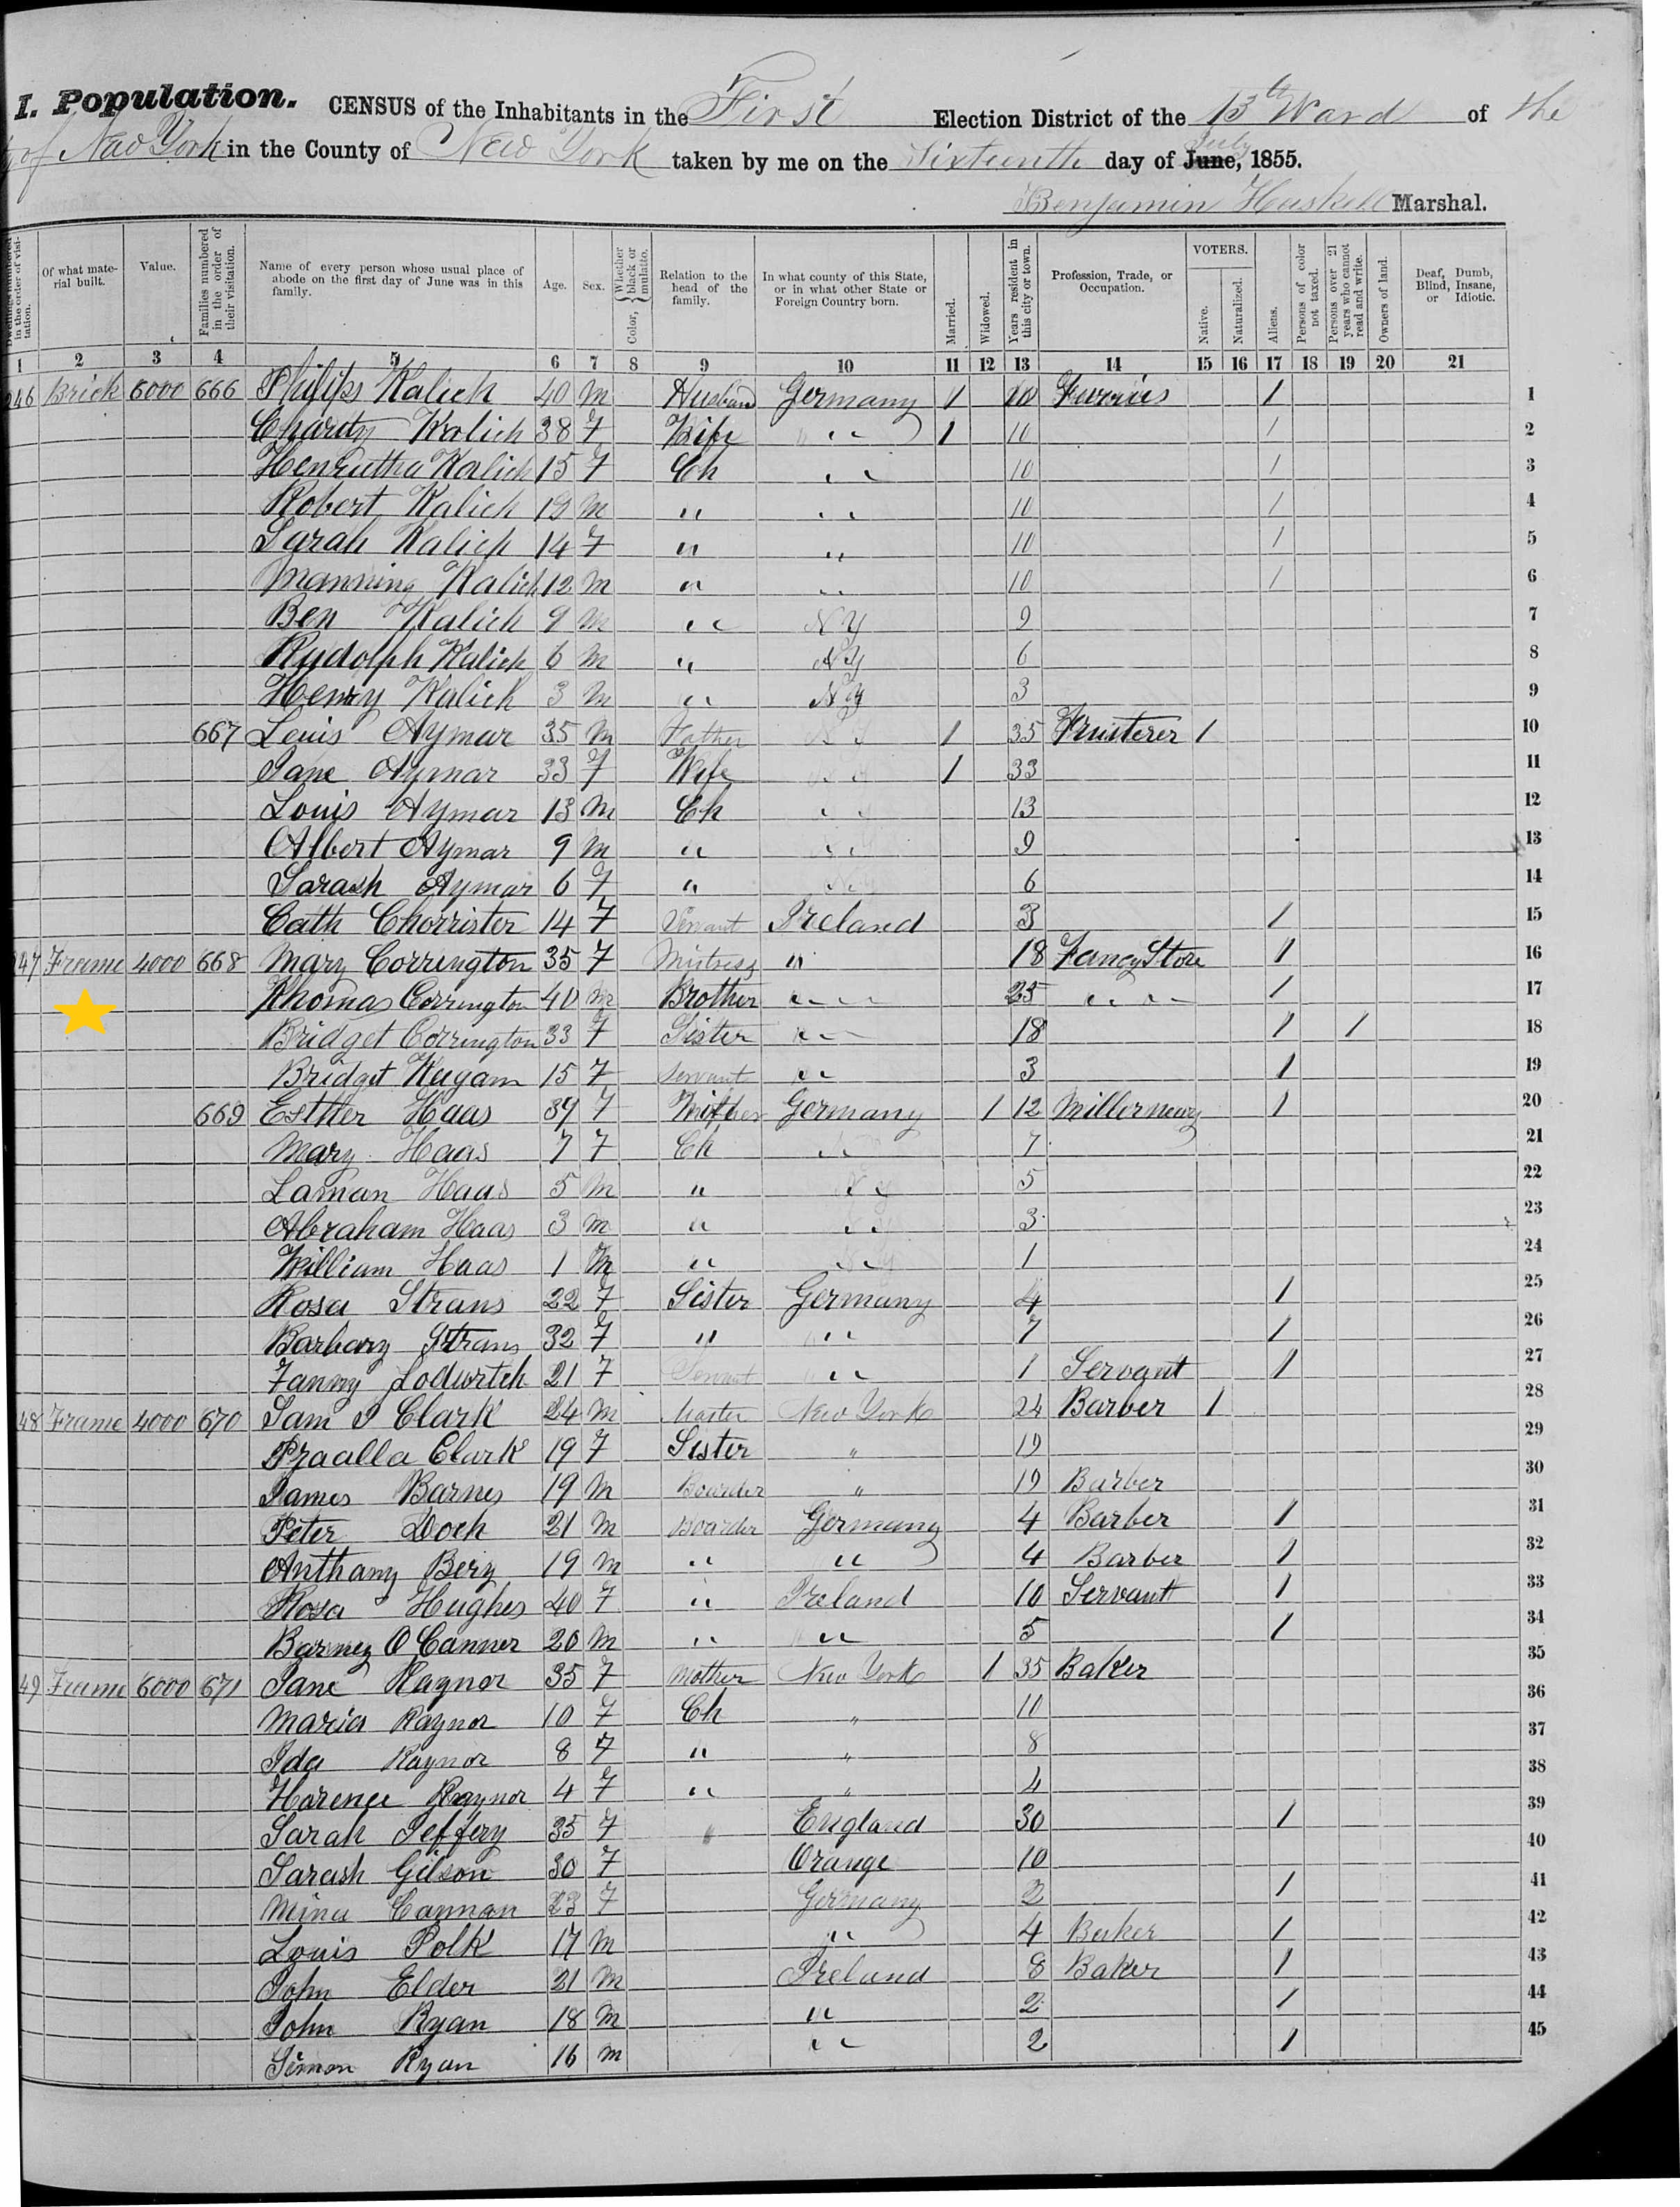 I. Population. CENSUS of the Inhabitants in the First Election District of the 13th Ward of the
of New York in the County of New York taken by me on the Sixteenth day of June, July 1855.
Benjamin Haskell Marshal.
Dwellings numbered in the order of visitation. Of what material built. Value. Families numbered in the order of their visitation. Name of every person whose usual place of abode on the first day of June was in this family. Age. Sex. Color, Whether black or mulatto. Relation to the head of the family. In what county of this State, or in what other State or Foreign Country born. Married. Widowed. Years resident in this city or town. Profession, Trade, or Occupation. VOTERS. Native. Naturalized. Aliens. Persons of color not taxed. Persons over 21 years who cannot read and write. Owners of land. Deaf, Dumb, Blind, Insane, or Idiotic.
1 2 3 4 5 6 7 8 9 10 11 12 13 14 15 16 17 18 19 20 21
246 Brick 6000 666 Philips Kalich 40 M Husband Germany 1 10 Furriers 1 1
Charity Kalich 38 F Wife " 1 10 1 2
Kalich 15 F Ch " 10 1 3
Robert Kalich 19 M " " 10 1 4
Sarah Kalich 14 F " " 10 1 5
Manning Kalich 12 M " " 10 1 6
Ben Kalich 9 M " N Y 9 7
Rudolph Kalich 6 M " N Y 6 8
Henry Kalich 3 M " N Y 3 9
667 Louis Aymar 35 M Father N Y 1 35 Fruiterer 1 10
Jane Aymar 33 F Wife 1 33 11
Louis Aymar 13 M Ch " 13 12
Albert Aymar 9 M " " 9 13
Sarah Aymar 6 F " 6 14
Cath Chorrister 14 F Servant Ireland 3 1 15
247 Frame 4000 668 Mary Corrington 35 F Mistress " 18 Fancy Store 1 16
Thomas Corrington 40 M Brother " 25 " " 1 17
Bridget Corrington 33 F Sister " 18 1 1 18
Bridget Kugam 15 F Servant " 3 1 19
669 Esther Haas 39 F Mother Germany 1 12 1 20
Mary Haas 7 F Ch " 7 21
Laman Haas 5 M " N Y 5 22
Abraham Haas 3 M " " 3 23
William Haas 1 M " " 1 24
Rosa Strans 22 F Sister Germany 4 1 25
Barbary Strans 32 F " " 7 1 26
Fanny Lodwitch 21 F Servant " 1 Servant 1 27
48 Frame 4000 670 Sam I Clark 24 M Master New York 24 Barber 1 28
Clark 19 F Sister " 19 29
James Barnes 19 M Boarder " 19 Barber 30
Peter Doch 21 M Boarder Germany 4 Barber 1 31
Anthany Berg 19 M " " 4 Barber 1 32
Rosa Hughes 40 F " Ireland 10 Servant 1 33
Barney O Canner 20 M " " 5 1 34
49 Frame 6000 671 Jane Raynor 35 F Mother New York 1 35 Baker 35
Maria Raynor 10 F Ch " 11 36
Ida Raynor 8 F " " 8 37
Florence Raynor 4 F " " 4 38
Sarah Jeffery 35 F " England 30 1 39
Sarah Gilson 30 F Orange 10 40
Mina Canman 23 F Germany 2 1 41
Louis Polk 17 M " 4 Baker 1 42
John Elder 21 M Ireland 8 Baker 1 43
John Ryan 18 M " 2 1 44
Simon Ryan 16 M " 2 1 45